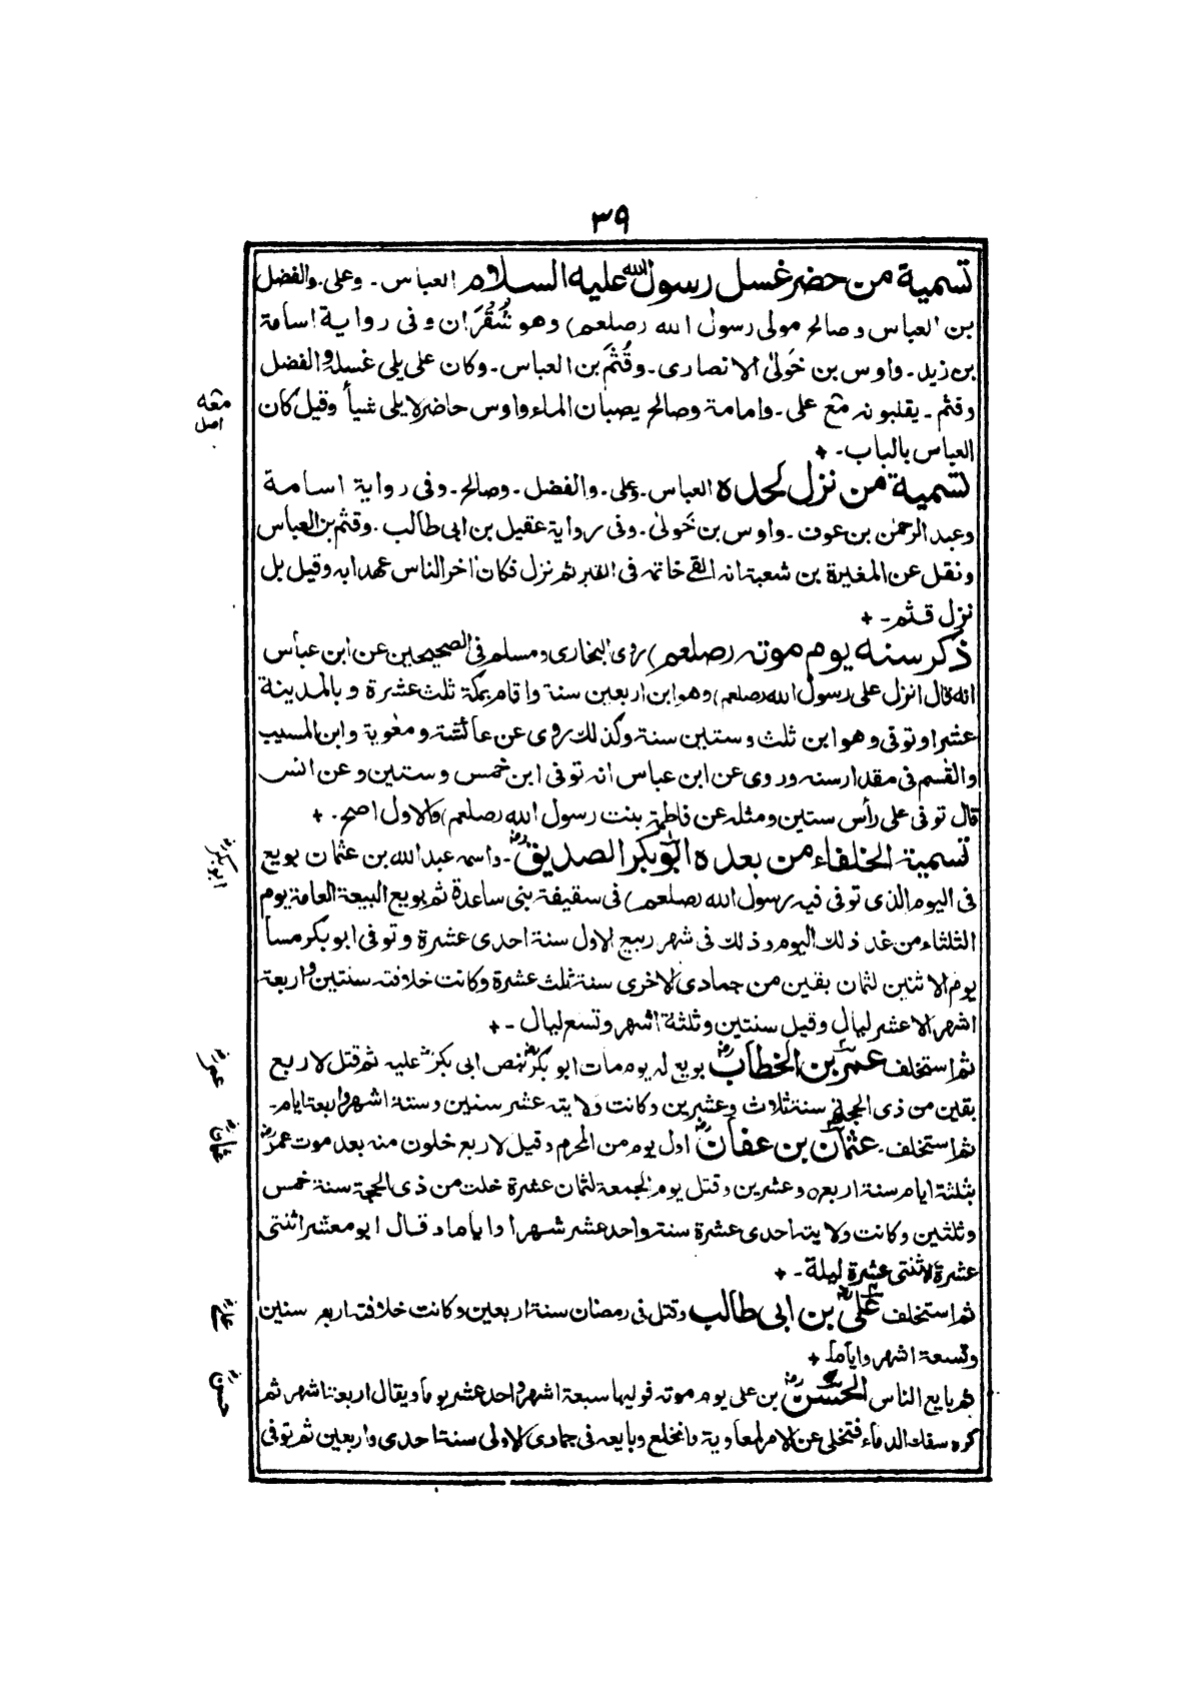 ٣٩
تسمية من حضر غسل رسول الله عليه السلام العباس۔ وعلى۔ والفضل
بن العباس وصالح مولى رسول الله (صلعم) وهو شُقْرَان وفى رواية اسامة
بن زيد۔ واوس بن خَولىٰ الانصارى۔ وقُثَم بن العباس۔ وكان على يلى غسله والفضل
وقثم۔ يقلبونه مع على۔ وامامة وصالح يصبان الماء واوس حاضر لا يلى شيأ وقيل كان
معه
اصل
العباس بالباب۔ +
تسمية من نزل لحده العباس۔ وعلى۔ والفضل۔ وصالح۔ وفى رواية اسامة
وعبد الرحمٰن بن عوف۔ واوس بن خَولىٰ۔ وفى رواية عقيل بن ابى طالب۔ وقثم بن العباس
ونقل عن المغيرة بن شعبة انه القے خاتمه فى القبر ثم نزل فكان اخر الناس عهدا به وقيل بل
نزل قثم۔ +
ذكر سنه يوم موته (صلعم) روى البخارى ومسلم فى الصحيحين عن ابن عباس
انه قال انزل على رسول الله (صلعم) وهو ابن اربعين سنة واقام بمكة ثلث عشرة وبالمدينة
عشرا وتوفى وهو ابن ثلث وستين سنة وكذلك روى عن عائشة ومعٰوية وابن المسيب
والقٰسم فى مقدار سنه وروى عن ابن عباس انه توفى ابن خمس وستين وعن انس
قال توفى على رأس ستين ومثله عن فاطمة بنت رسول الله (صلعم) والاول اصح۔ +
تسمية الخلفاء من بعده ابو بكر الصديق رض۔ واسمه عبد الله بن عثمان بويع
ابو بكر رض
فى اليوم الذى توفى فيه رسول الله (صلعم) فى سقيفة بنى ساعدة ثم بويع البيعة العامة يوم
الثلثاء من غد ذلك اليوم وذلك فى شهر ربيع الاول سنة احدى عشرة وتوفى ابو بكر مسأ
يوم الاثنين لثمان بقين من جمادى الاخرى سنة ثلث عشرة وكانت خلافته سنتين واربعة
اشهر الا عشر ليال وقيل سنتين وثلثة اشهر وتسع ليال۔ +
ثم استخلف عمر بن الخطاب رض بويع له يوم مات ابو بكر رض بنص ابى بكر رض عليه ثم قتل لاربع
عمر رض
بقين من ذى الحجة سنة ثلاث وعشرين وكانت ولايته عشر سنين وستة اشهر واربعة ايام۔
ثم استخلف۔ عثمان بن عفان رض اول يوم من المحرم وقيل لاربع خلون منه بعد موت عمر رض
عثمان رض
بثلثة ايام سنة اربعه وعشرين وقتل يوم الجمعة لثمان عشرة خلت من ذى الحجة سنة خمس
وثلثين وكانت ولايته احدى عشرة سنة واحد عشر شهرا واياما وقال ابو معشر اثنتى
عشرة الا ثنتى عشرة ليلة۔ +
ثم استخلف على بن ابى طالب وقتل فى رمضان سنة اربعين وكانت خلافته اربع سنين
على رض
وتسعة اشهر واياما۔ +
ثم بايع الناس الحسن رض بن على يوم موته فوليها سبعة اشهر واحد عشر يوما ويقال اربعة اشهر ثم
حسن رض
كره سفك الدماء فتخلى عن الامر لمعاوية وانخلع وبايعه فى جمادى الاولى سنة احدى واربعين ثم توفى